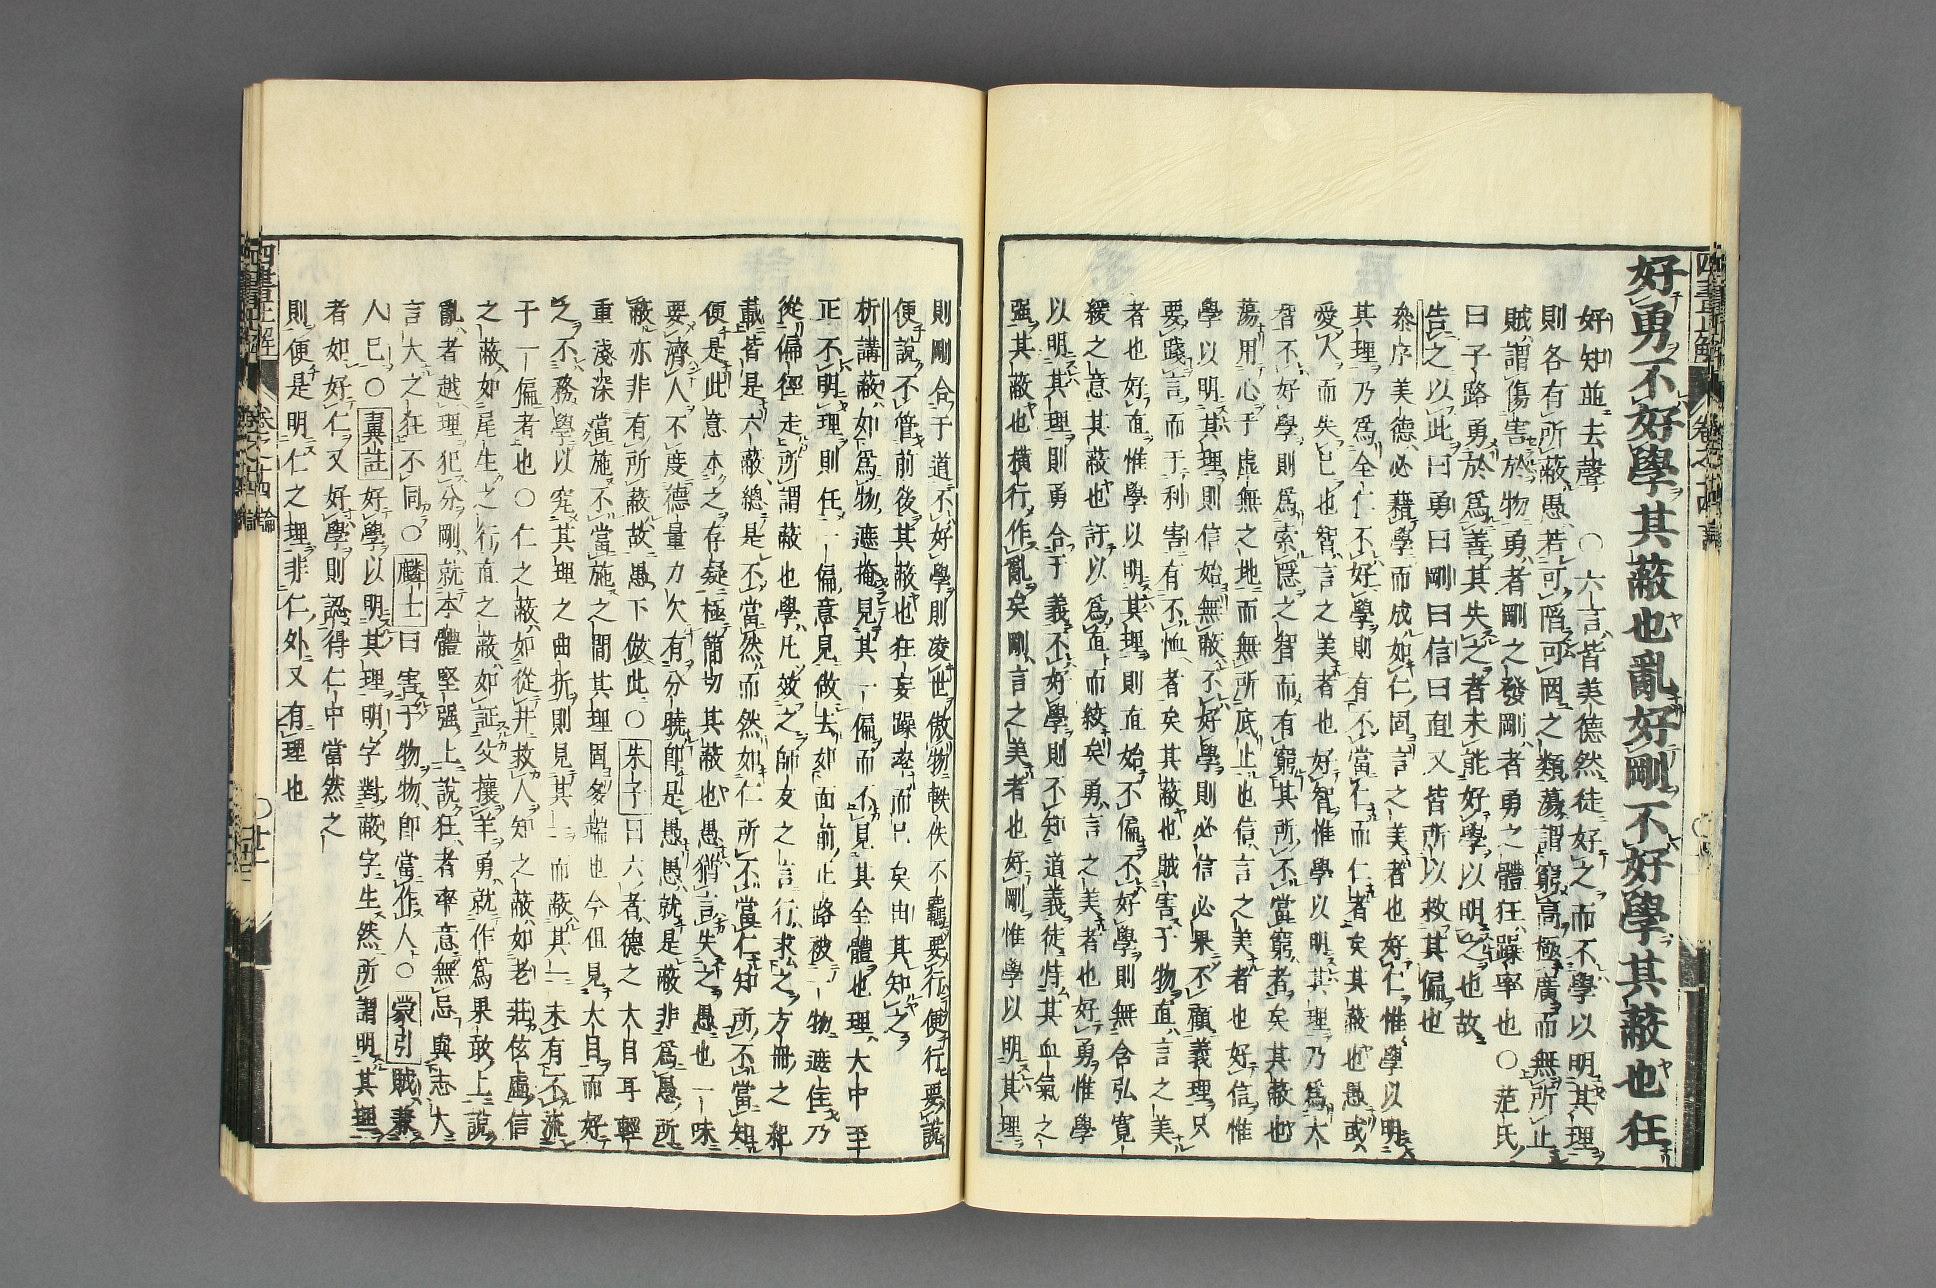 好勇不好學其蔽也亂好剛不好學其蔽也狂
好知並去聲○六言皆美德然徒好之而不學以明其理
則各有所蔽愚若可陷可罔之類蕩謂窮高極廣而無所止
賊謂傷害於物勇者剛之發剛者勇之體狂躁率也○范氏
曰子路勇於爲善其失之者未能好學以明之也故
告之以此曰勇曰剛曰信曰直又皆所以救其偏也
叅序美德必藉學而成如仁固言之美者也好仁惟學以明
其理乃爲全仁不好學則有不當仁而仁者矣其蔽也愚或
愛人而失己也智言之美者也好智惟學以明其理乃爲大
智不好學則爲索隱之智而有窮其所不當窮者矣其蔽也
蕩用心于虛無之地而無所底止也信言之美者也好信惟
學以明其理則信始無蔽不好學則必信必果不顧義理只
要踐言而于利害有不恤者矣其蔽也賊害于物直言之美
者也好直惟學以明其理則直始不偏不好學則無含弘寬
緩之意其蔽也訐以爲直而絞矣勇言之美者也好勇惟學
以明其理則勇合于義不好學則不知道義徒恃其血氣之
强其蔽也橫行作亂矣剛言之美者也好剛惟學以明其理
則剛合于道不好學則凌世傲物軼佚不羈要行便行要說
便說不管前後其蔽也狂妄躁率而已矣由其知之
析講蔽如爲物遮掩見其一偏而不見其全體也理大中至
正不明理則任一偏意見做去如面前止路被一物遮住乃
從偏徑走所謂蔽也學凡效之師友之言行求之方冊之紀
載皆是六蔽總是不當然而然如仁所不當仁知所不當知
便是此意本之存疑極簡切其蔽也愚猶言失之愚也一味
要濟人不度德量力欠有分曉卽是愚愚就是蔽非爲愚所
蔽亦非有所蔽故愚下倣此○朱子曰六者德之大目耳輕
重淺深當施不當施之間其理固多端也今但見大目而好
之不務學以究其理之曲折則見其一而蔽其一未有不流
于一偏者也○仁之蔽如從井救人知之蔽如老莊佉虛信
之蔽如尾生之行直之蔽如証父攘羊勇就作爲果敢上說
亂者越理犯分剛就本體堅强上說狂者率意無忌與志大
言大之狂不同○麟士曰害于物物卽當作人○蒙引賊兼
人己○翼註好學以明其理明字對蔽字生然所謂明其理
者如好仁又好學則認得仁中當然之
則便是明仁之理非仁外又有理也